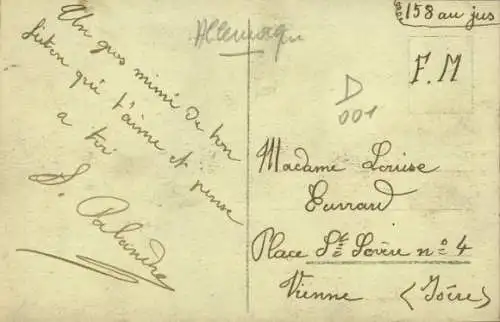 Un gros mimi de ton
fiston qui t'aime et pense
a toi
S. Palandre
Allemagne
158 au jus
F.M
D
001
Madame Louise
Place Ste Sévère n° 4
Vienne (Isère)